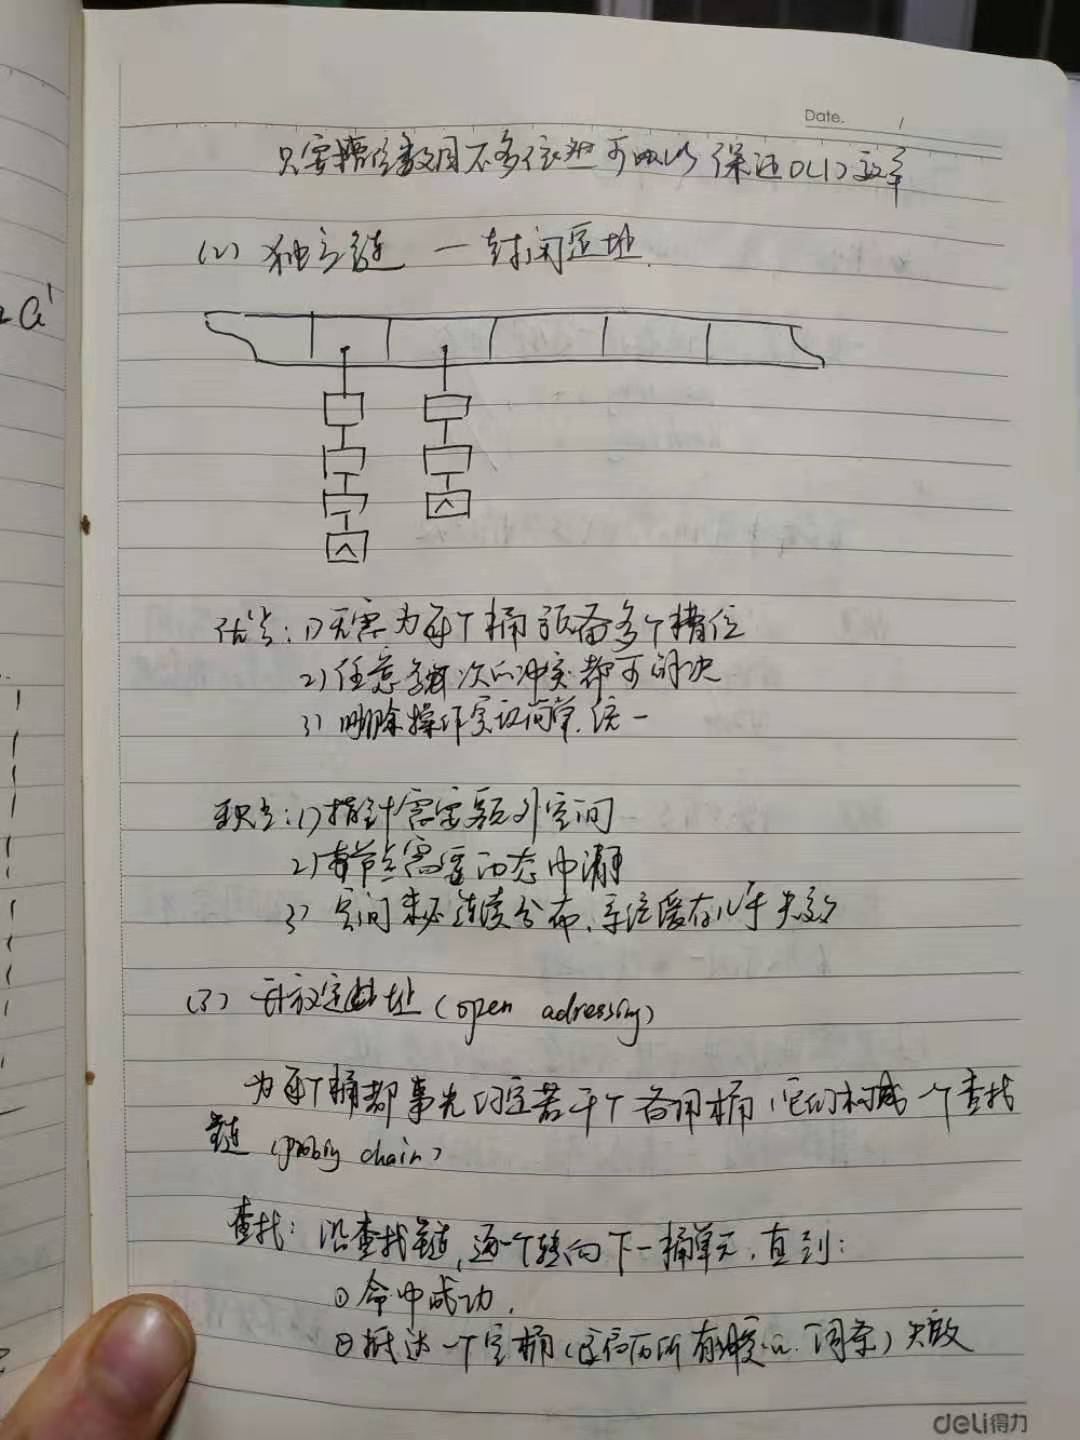 Date.
只要槽位数目不多依然可以保证O(1)效率
(2) 独立链 — 封闭定址.
优点: 1) 无需为每个桶预备多个槽位
2) 任意多次的冲突都可解决
3) 删除操作实现简单.统一
缺点: 1) 指针需要额外空间
2) 节点需要动态申请
3) 空间未必连续分布.系统缓存几乎失效
(3) 开放定址 (open adressing)
为每个桶都事先约定若干个备用桶,它们构成一个查找
链 (probing chain)
查找: 沿查找链,逐个转向下一桶单元.直到:
① 命中成功.
② 抵达一个空桶 (词条) 失败
deli得力